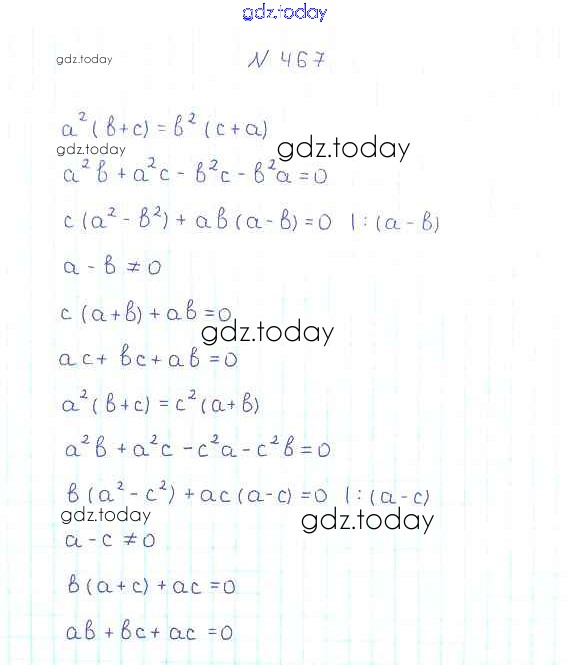 gdz.today
gdz.today
N 467
a²(b+c)=b²(c+a)
gdz.today
gdz.today
a²b+a²c-b²c-b²a=0
c(a²-b²)+ab(a-b)=0 |:(a-b)
a-b≠0
c(a+b)+ab=0
gdz.today
ac+bc+ab=0
a²(b+c)=c²(a+b)
a²b+a²c-c²a-c²b=0
b(a²-c²)+ac(a-c)=0 |:(a-c)
gdz.today
gdz.today
a-c≠0
b(a+c)+ac=0
ab+bc+ac=0